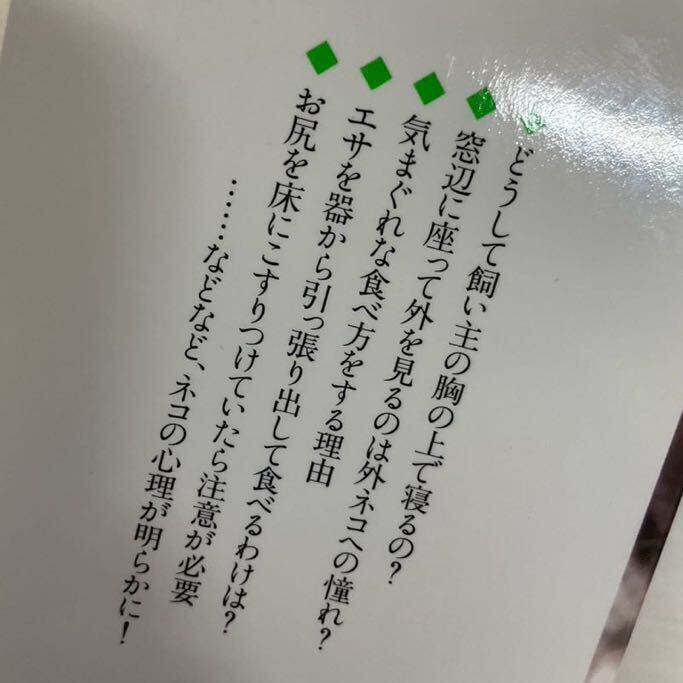 ◆どうして飼い主の胸の上で寝るの?
◆窓辺に座って外を見るのは外ネコへの憧れ?
◆気まぐれな食べ方をする理由
◆エサを器から引っ張り出して食べるわけは?
◆お尻を床にこすりつけていたら注意が必要
……などなど、ネコの心理が明らかに!